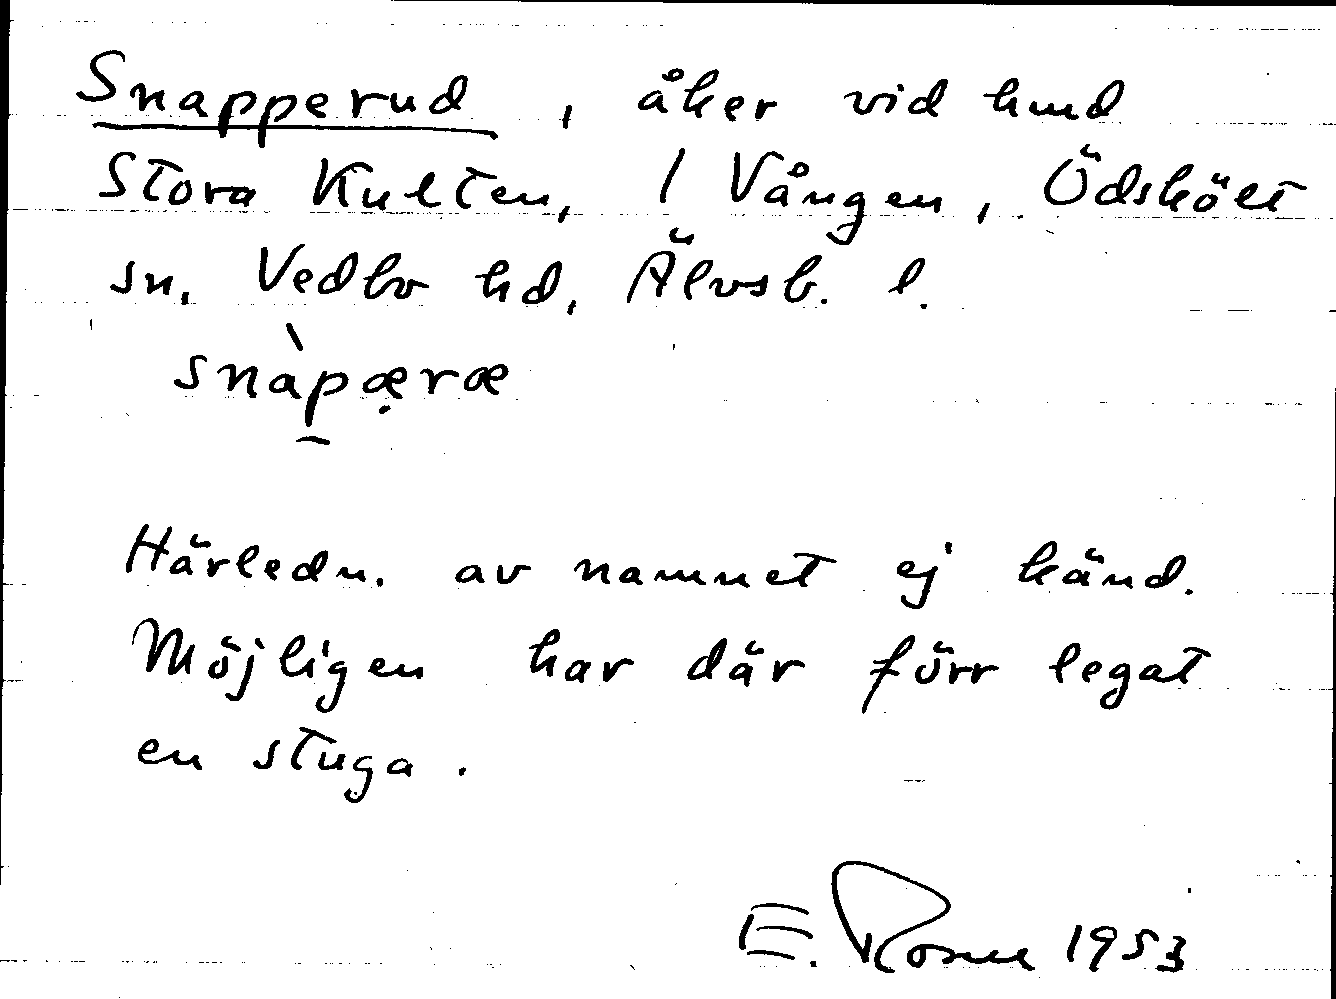 Snapperud, åker vid hmd
Stora Kulten, 1 Vången, Ödskölt
sn, Vedbo hd, Älvsb. l.
snàpæræ
Härledn. av namnet ej känd.
Möjligen har där förr legat
en stuga.
E. 1953